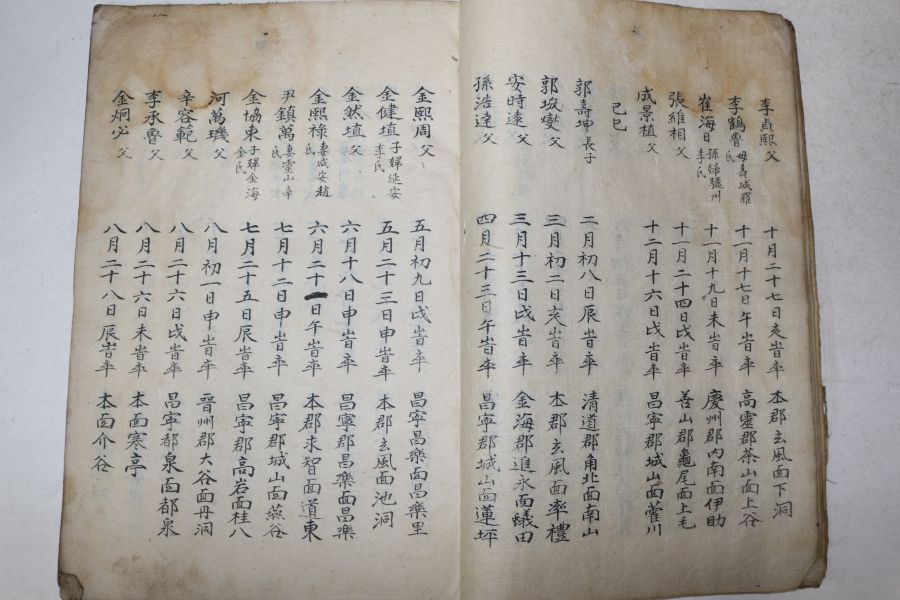 李貞熙 父 十月二十七日亥時卒 本郡玄風面下洞
李鶴魯 母壽城羅氏 十一月十七日午時卒 高靈郡茶山面上谷
崔海日 孫婦驪州李氏 十一月十九日未時卒 慶州郡内南面伊助
張維相 父 十一月二十四日戌時卒 善山郡龜尾面上毛
成景植 父 十二月十六日戌時卒 昌寧郡城山面雚川
己巳
郭壽坤 長子 二月初八日辰時卒 清道郡角北面南山
郭埈燮 父 三月初二日亥時卒 本郡玄風面率禮
安時遠 父 三月十三日戌時卒 金海郡進永面蟻田
孫浩達 父 四月二十三日午時卒 昌寧郡城山面蓮坪
金熙周 父 五月初九日戌時卒 昌寧昌樂面昌樂里
金健埴 子婦延安李氏 五月二十三日申時卒 本郡玄風面池洞
金然埴 父 六月十八日申時卒 昌寧郡昌樂面昌樂
金熙祿 妻咸安趙氏 六月二十一日午時卒 本郡求智面道東
尹鎮萬 妻靈山辛氏 七月十二日申時卒 昌寧郡城山面燕谷
金協東 子婦金海金氏 七月二十五日辰時卒 昌寧郡高岩面桂八
河萬璣 父 八月初一日申時卒 晋州郡大谷面丹洞
辛容範 父 八月二十六日戌時卒 昌寧都泉面都泉
李承魯 父 八月二十六日未時卒 本面寒亭
金炯必 父 八月二十八日辰時卒 本面介谷